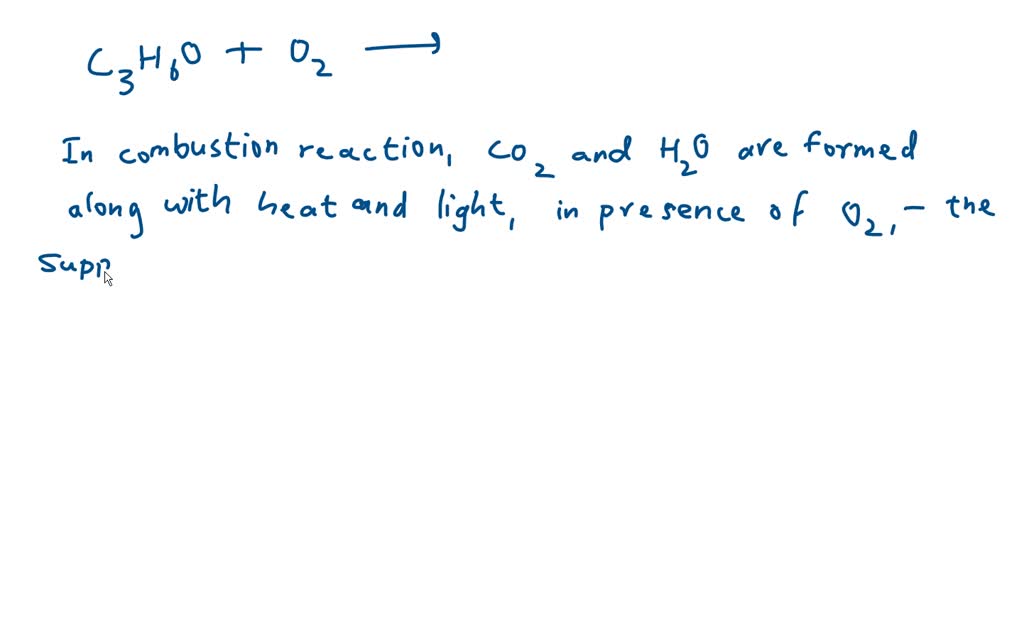 C₃H₆O + O₂ ⟶
In combustion reaction, CO₂ and H₂O are formed
along with heat and light, in presence of O₂, - the
supp